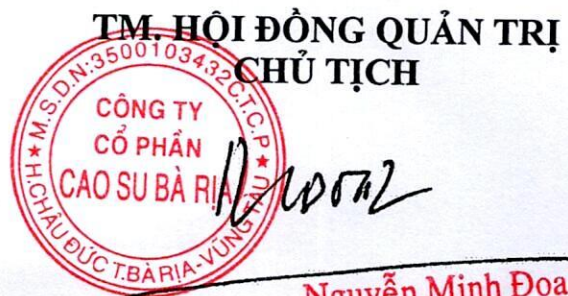 TM. HỘI ĐỒNG QUẢN TRỊ
CHỦ TỊCH
M.S.D.N:3500103432-C.T.C.P
CÔNG TY
CỔ PHẦN
CAO SU BÀ RỊA
H.CHÂU ĐỨC T.BÀ RỊA-VŨNG TÀU
Nguyễn Minh Đoa